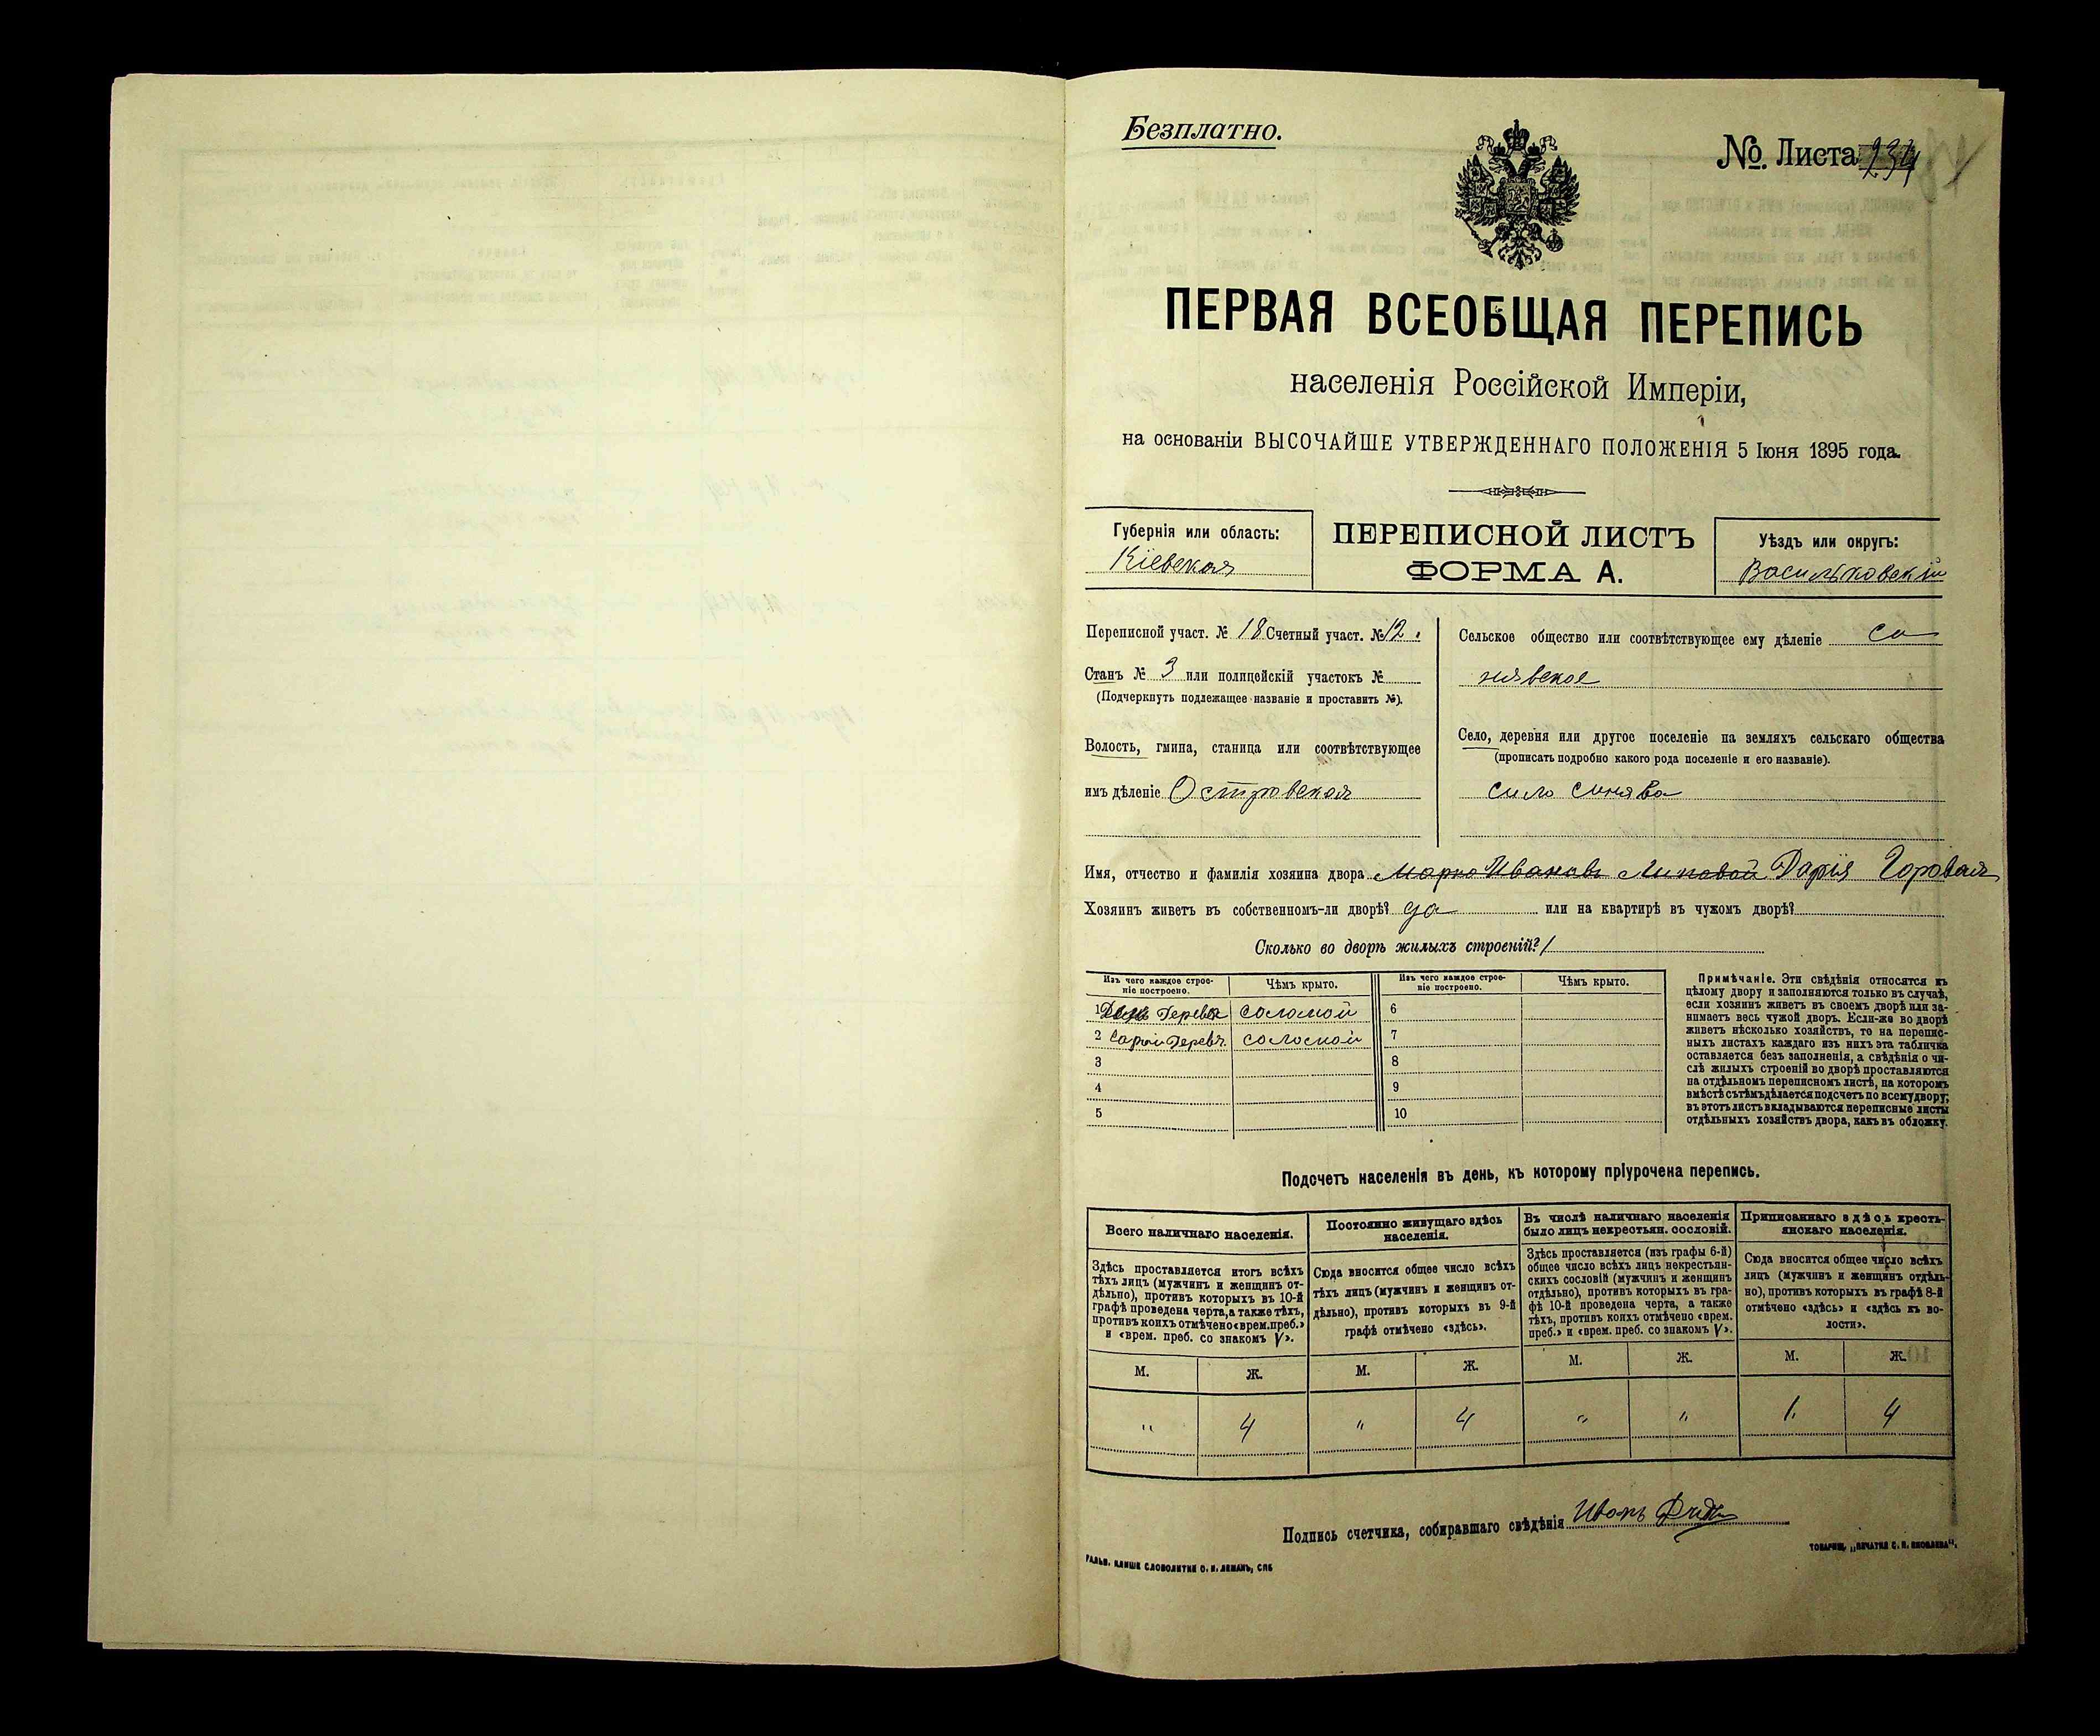 Безплатно.
No. Листа 234
ПЕРВАЯ ВСЕОБЩАЯ ПЕРЕПИСЬ
населенія Россійской Имперіи,
на основаніи ВЫСОЧАЙШЕ УТВЕРЖДЕННАГО ПОЛОЖЕНІЯ 5 Іюня 1895 года.
Губернія или область:
Кіевская
ПЕРЕПИСНОЙ ЛИСТЪ
ФОРМА А.
Уѣздъ или округъ:
Васильковскій
Переписной участ. № 18 Счетный участ. № 12.
Станъ № 3 или полицейскій участокъ №
(Подчеркнуть подлежащее названіе и проставить №).
Волость, гмина, станица или соотвѣтствующее
имъ дѣленіе Островская
Сельское общество или соотвѣтствующее ему дѣленіе Си
нявское
Село, деревня или другое поселеніе на земляхъ сельскаго общества
(прописать подробно какого рода поселеніе и его названіе).
село Синява
Имя, отчество и фамилія хозяина двора Марко Ивановъ Липовой Дарія Горовая
Хозяинъ живетъ въ собственномъ-ли дворѣ? да или на квартирѣ въ чужомъ дворѣ?
Сколько во дворѣ жилыхъ строеній? 1
Изъ чего каждое строеніе построено.
Чѣмъ крыто.
Изъ чего каждое строеніе построено.
Чѣмъ крыто.
1 Дерев соломой
2 Сарай дерев. соломой
3
4
5
6
7
8
9
10
Примѣчаніе. Эти свѣдѣнія относятся къ
цѣлому двору и заполняются только въ случаѣ,
если хозяинъ живетъ въ своемъ дворѣ или за-
нимаетъ весь чужой дворъ. Если-же во дворѣ
живетъ нѣсколько хозяйствъ, то на перепис-
ныхъ листахъ каждаго изъ нихъ эта табличка
оставляется безъ заполненія, а свѣдѣнія о чи-
слѣ жилыхъ строеній во дворѣ проставляются
на отдѣльномъ переписномъ листѣ, на которомъ
вмѣстѣ съ тѣмъ дѣлается подсчетъ по всему двору;
въ этотъ листъ вкладываются переписные листы
отдѣльныхъ хозяйствъ двора, какъ въ обложку.
Подсчетъ населенія въ день, къ которому пріурочена перепись.
Всего наличнаго населенія.
Здѣсь проставляется итогъ всѣхъ
тѣхъ лицъ (мужчинъ и женщинъ от-
дѣльно), противъ которыхъ въ 10-й
графѣ проведена черта, а также тѣхъ,
противъ коихъ отмѣчено «врем. преб.»
и «врем. преб. со знакомъ V».
Постоянно живущаго здѣсь
населенія.
Сюда вносится общее число всѣхъ
тѣхъ лицъ (мужчинъ и женщинъ от-
дѣльно), противъ которыхъ въ 9-й
графѣ отмѣчено «здѣсь».
Въ числѣ наличнаго населенія
было лицъ некрестьян. сословій.
Здѣсь проставляется (изъ графы 6-й)
общее число всѣхъ лицъ некрестьян-
скихъ сословій (мужчинъ и женщинъ
отдѣльно), противъ которыхъ въ гра-
фѣ 10-й проведена черта, а также
тѣхъ, противъ коихъ отмѣчено «врем.
преб.» и «врем. преб. со знакомъ V».
Приписаннаго здѣсь кресть-
янскаго населенія.
Сюда вносится общее число всѣхъ
лицъ (мужчинъ и женщинъ отдѣль-
но), противъ которыхъ въ графѣ 8-й
отмѣчено «здѣсь» и «здѣсь къ во-
лости».
М. Ж. М. Ж. М. Ж. М. Ж.
" 4 " 4 " " 1. 4
Подпись счетчика, собиравшаго свѣдѣнія Иванъ
ГАЛЬВ. КЛИШЕ СЛОВОЛИТНИ О. И. ЛЕМАНЪ, СПБ
ТОВАРИЩ. „ПЕЧАТНЯ С. П. ЯКОВЛЕВА".